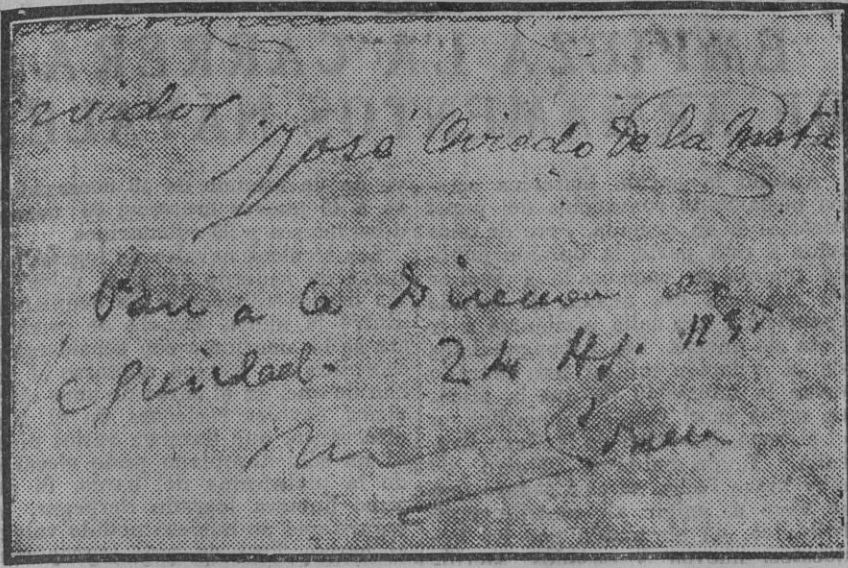 ervidor
José Oviedo de la Mota
Pase a la Direccion de
Seguridad. 24 Hs.